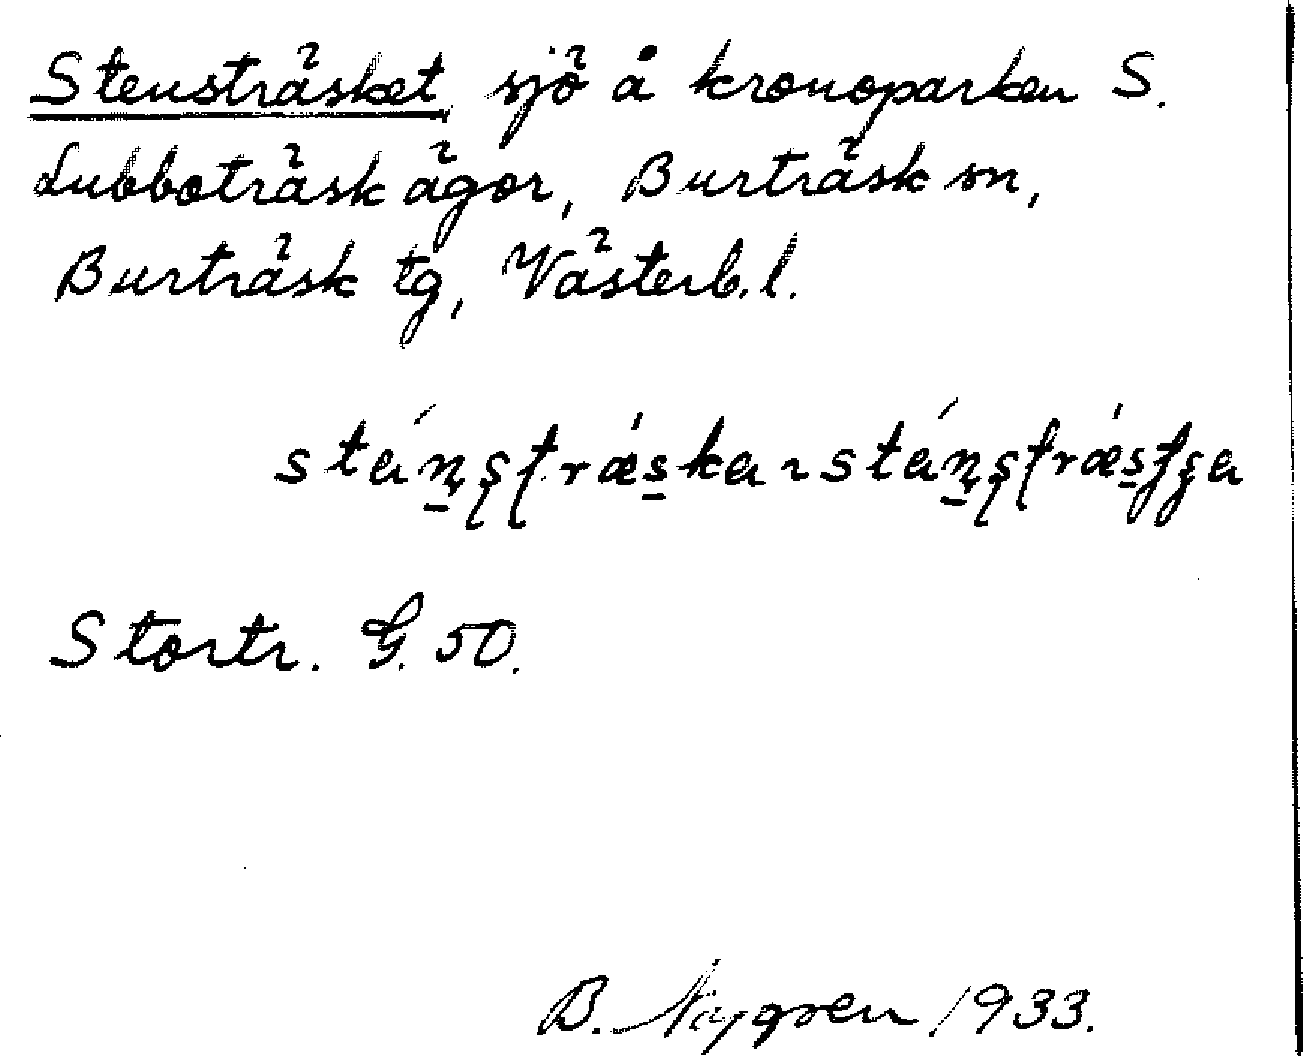 Stensträsket, sjö å kronoparken S.
Lubboträsk ägor, Burträsk sn,
Burträsk tg, Västerb. l.
Stortr. G. 50.
B. Nygren 1933.